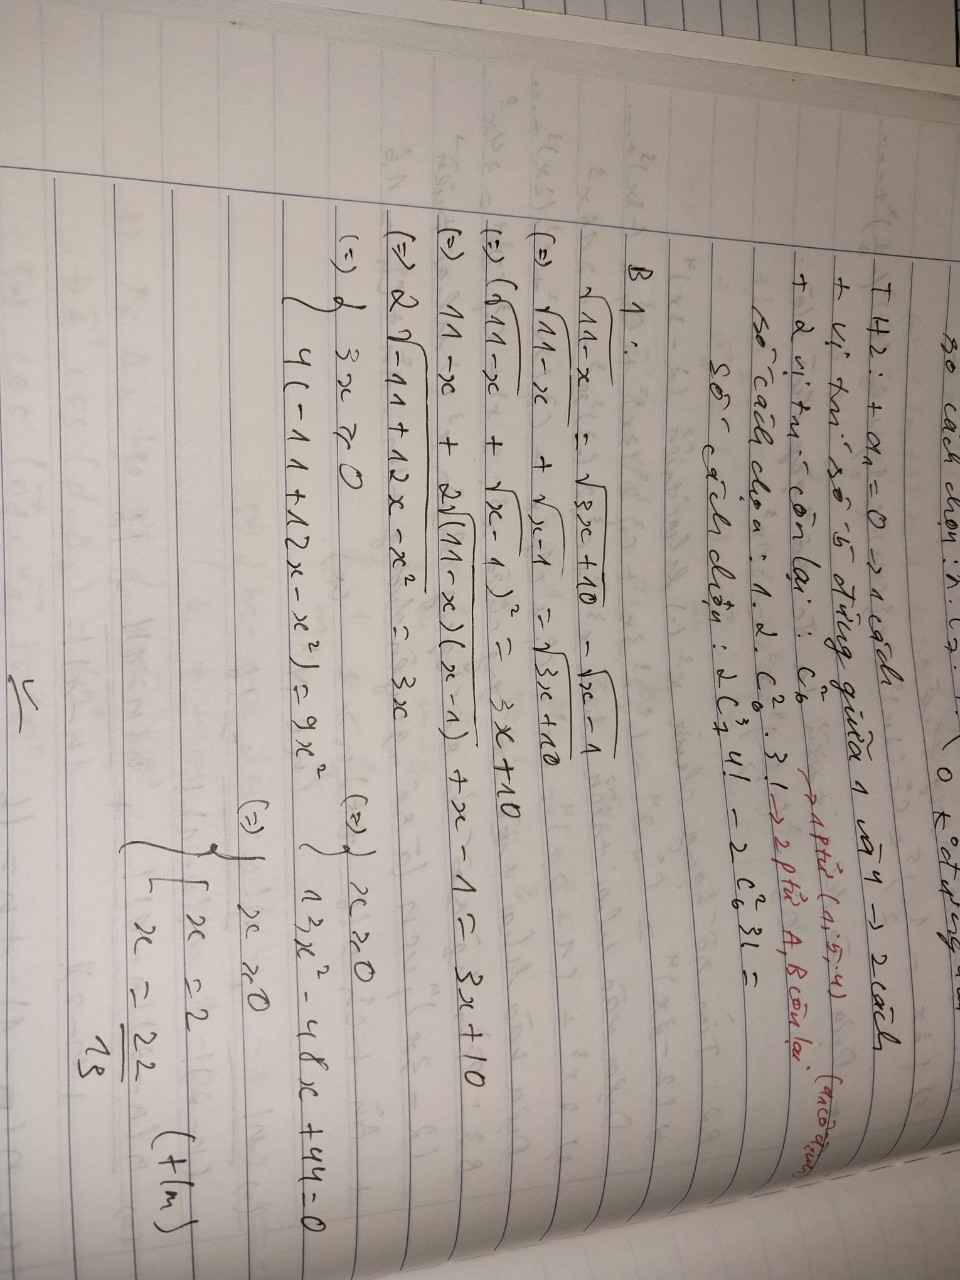 số cách chọn:
TH2: + a₁ = 0 → 1 cách
+ vị trí số 5 đứng giữa 1 và 4 → 2 cách
+ 2 vị trí còn lại: C₆² → 1 ptử (1; 5; 4) (a₁ cố định)
số cách chọn: 1.2.C₆².3! → 2 ptử A, B còn lại.
Số cách chọn: 2C₇³ 4! - 2C₆² 3! =
B1:
√(11-x) = √(3x+10) - √(x-1)
(=) √(11-x) + √(x-1) = √(3x+10)
(=) (√(11-x) + √(x-1))² = 3x+10
(=) 11-x + 2√((11-x)(x-1)) + x-1 = 3x+10
(=) 2√(-11+12x-x²) = 3x
(=) { 3x ⩾ 0 (=) { x ⩾ 0
{ 4(-11+12x-x²) = 9x² { 13x² - 48x + 44 = 0
(=) { x ⩾ 0
{ [ x = 2
[ x = 22/13 (t/m)